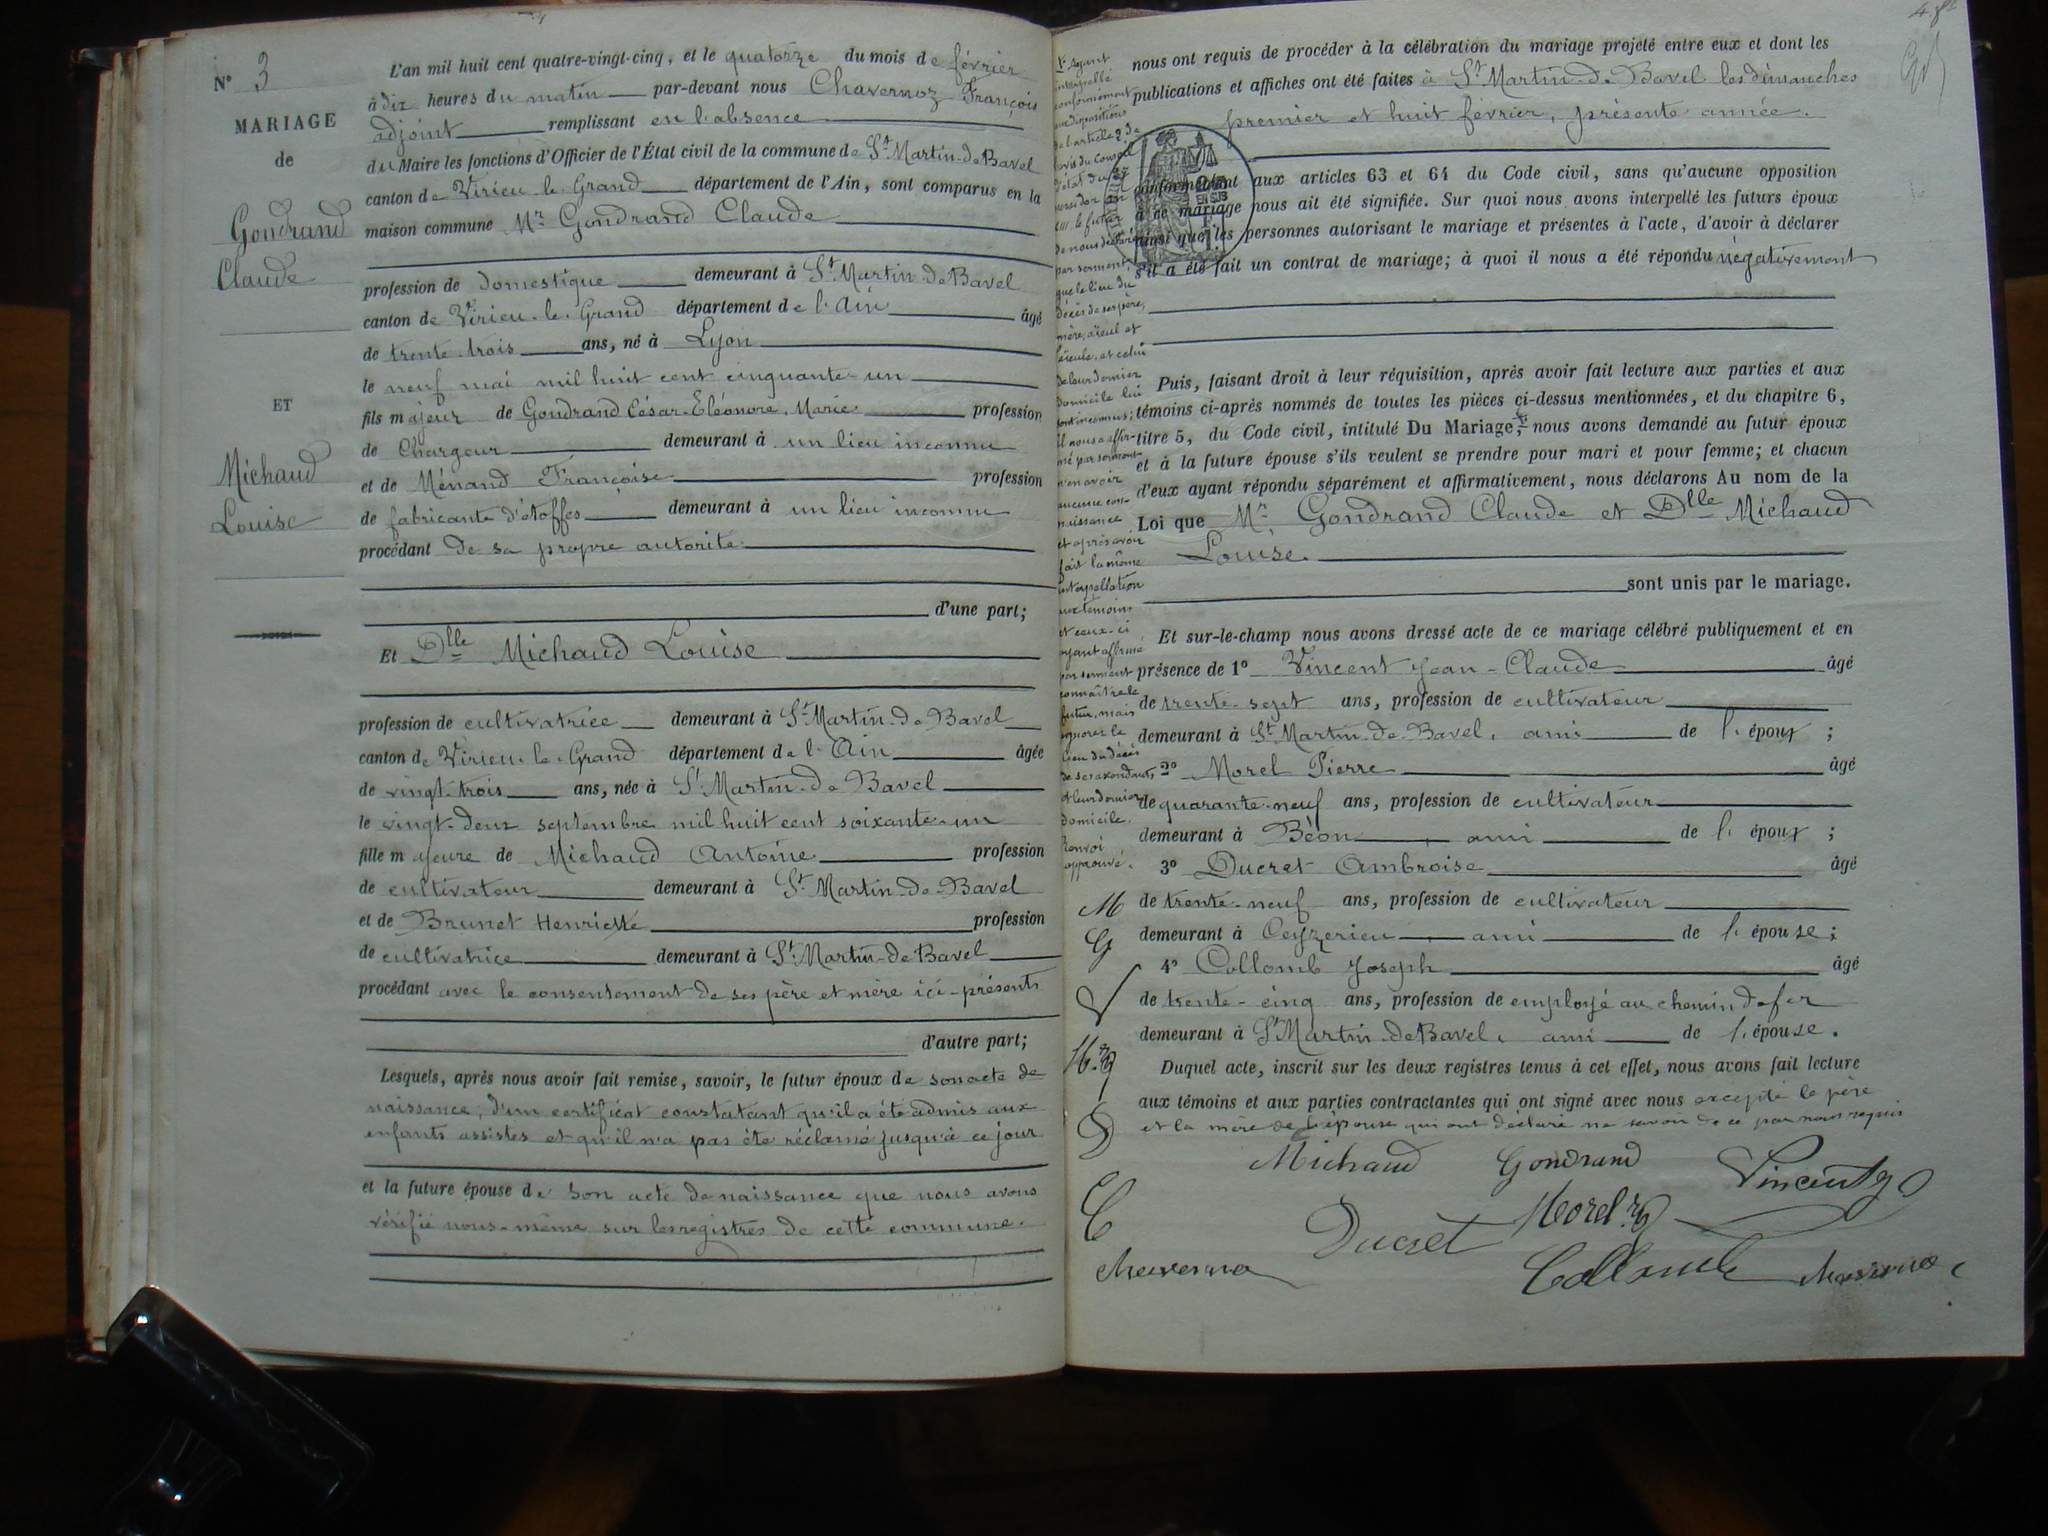 N° 3
MARIAGE
de
Gondrand
Claude
ET
Michaud
Louise
L'an mil huit cent quatre-vingt-cinq, et le quatorze du mois de février
à dix heures du matin par-devant nous Chavernoz François
adjoint remplissant en l'absence
du Maire les fonctions d'Officier de l'État civil de la commune de St Martin-de-Bavel
canton de Virieu-le-Grand département de l'Ain, sont comparus en la
maison commune Mr Gondrand Claude
profession de domestique demeurant à St Martin-de-Bavel
canton de Virieu-le-Grand département de l'Ain âgé
de trente-trois ans, né à Lyon
le neuf mai mil huit cent cinquante-un
fils majeur de Gondrand César-Eléonore-Marie profession
de Chargeur demeurant à un lieu inconnu
et de Ménand Françoise profession
de fabricante d'étoffes demeurant à un lieu inconnu
procédant de sa propre autorité
d'une part;
Et Dlle Michaud Louise
profession de cultivatrice demeurant à St Martin-de-Bavel
canton de Virieu-le-Grand département de l'Ain âgée
de vingt-trois ans, née à St Martin-de-Bavel
le vingt-deux septembre mil huit cent soixante-un
fille majeure de Michaud Antoine profession
de cultivateur demeurant à St Martin-de-Bavel
et de Brunet Henriette profession
de cultivatrice demeurant à St Martin-de-Bavel
procédant avec le consentement de ses père et mère ici-présents
d'autre part;
Lesquels, après nous avoir fait remise, savoir, le futur époux de son acte de
naissance, d'un certificat constatant qu'il a été admis aux
enfants assistés et qu'il n'a pas été réclamé jusqu'à ce jour
et la future épouse de son acte de naissance que nous avons
vérifié nous-même sur les registres de cette commune.
nous ont requis de procéder à la célébration du mariage projeté entre eux et dont les
publications et affiches ont été faites à St Martin-de-Bavel les dimanches
premier et huit février, présente année.
conformément aux articles 63 et 64 du Code civil, sans qu'aucune opposition
à ce mariage nous ait été signifiée. Sur quoi nous avons interpellé les futurs époux
ainsi que les personnes autorisant le mariage et présentes à l'acte, d'avoir à déclarer
s'il a été fait un contrat de mariage; à quoi il nous a été répondu négativement
Puis, faisant droit à leur réquisition, après avoir fait lecture aux parties et aux
témoins ci-après nommés de toutes les pièces ci-dessus mentionnées, et du chapitre 6,
titre 5, du Code civil, intitulé Du Mariage, nous avons demandé au futur époux
et à la future épouse s'ils veulent se prendre pour mari et pour femme; et chacun
d'eux ayant répondu séparément et affirmativement, nous déclarons Au nom de la
Loi que Mr Gondrand Claude et Dlle Michaud
Louise.
sont unis par le mariage.
Et sur-le-champ nous avons dressé acte de ce mariage célébré publiquement et en
présence de 1° Vincent Jean-Claude âgé
de trente-sept ans, profession de cultivateur
demeurant à St Martin-de-Bavel, ami de l'époux;
2° Morel Pierre âgé
de quarante-neuf ans, profession de cultivateur
demeurant à Béon, ami de l'époux;
3° Ducret Ambroise âgé
de trente-neuf ans, profession de cultivateur
demeurant à Ceyzerieu, ami de l'épouse;
4° Collomb Joseph âgé
de trente-cinq ans, profession de employé au chemin de fer
demeurant à St Martin-de-Bavel, ami de l'épouse.
Duquel acte, inscrit sur les deux registres tenus à cet effet, nous avons fait lecture
aux témoins et aux parties contractantes qui ont signé avec nous excepté le père
et la mère de l'épouse qui ont déclaré ne savoir de ce par nous requis
Michaud Gondrand Vincent
Ducret Morel
Collomb
Ayant
interpellé
conformément
aux dispositions
de l'article 2 de
l'avis du Conseil
d'état du
le futur
de nous déclarer
par serment,
que le lieu du
décès de ses père,
mère, aïeul et
aïeule, et celui
de leur dernier
domicile lui
sont inconnus;
il nous a affir-
mé par serment
n'en avoir
aucune con-
naissance
et après avoir
fait la même
interpellation
aux témoins
et ceux-ci
ayant affirmé
par serment
connaître le
futur, mais
ignorer le
lieu du décès
de ses ascendants
et leur dernier
domicile.
Renvoi
approuvé.
M
G
V
D
C